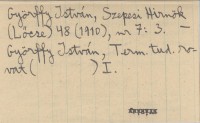 Györffy István, Szepesi Hírnök
(Lőcse) 48 (1910), nr 7: 3. —
Györffy István, Term. tud. ro-
vat ( ) I.